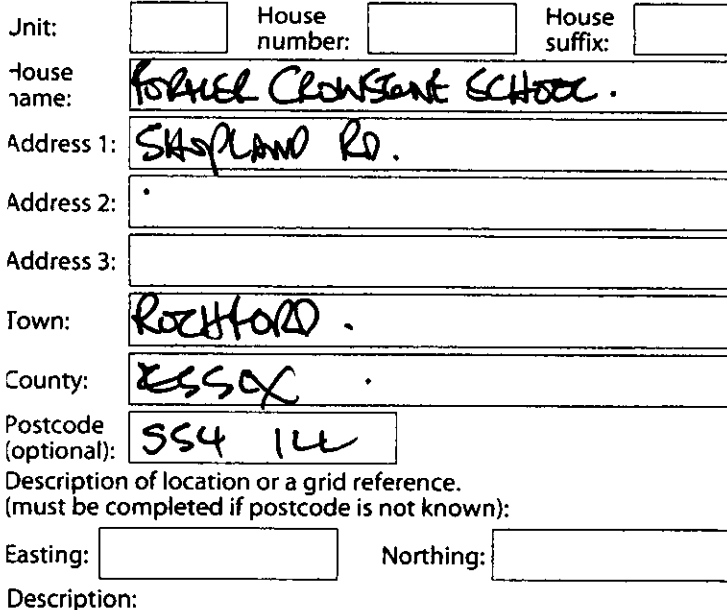 Unit: House number: House suffix:
House name: FORMER CROWSTONE SCHOOL.
Address 1: SHOPLAND RD.
Address 2:
Address 3:
Town: ROCHFORD.
County: ESSEX
Postcode (optional): SS4 1LL
Description of location or a grid reference.
(must be completed if postcode is not known):
Easting: Northing:
Description: